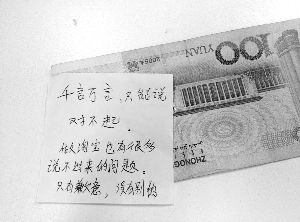 千言万语,只能说
对不起.
做淘宝也有很多
说不出来的问题。
只有歉意,没有别的
YUAN
100
ZHONGG